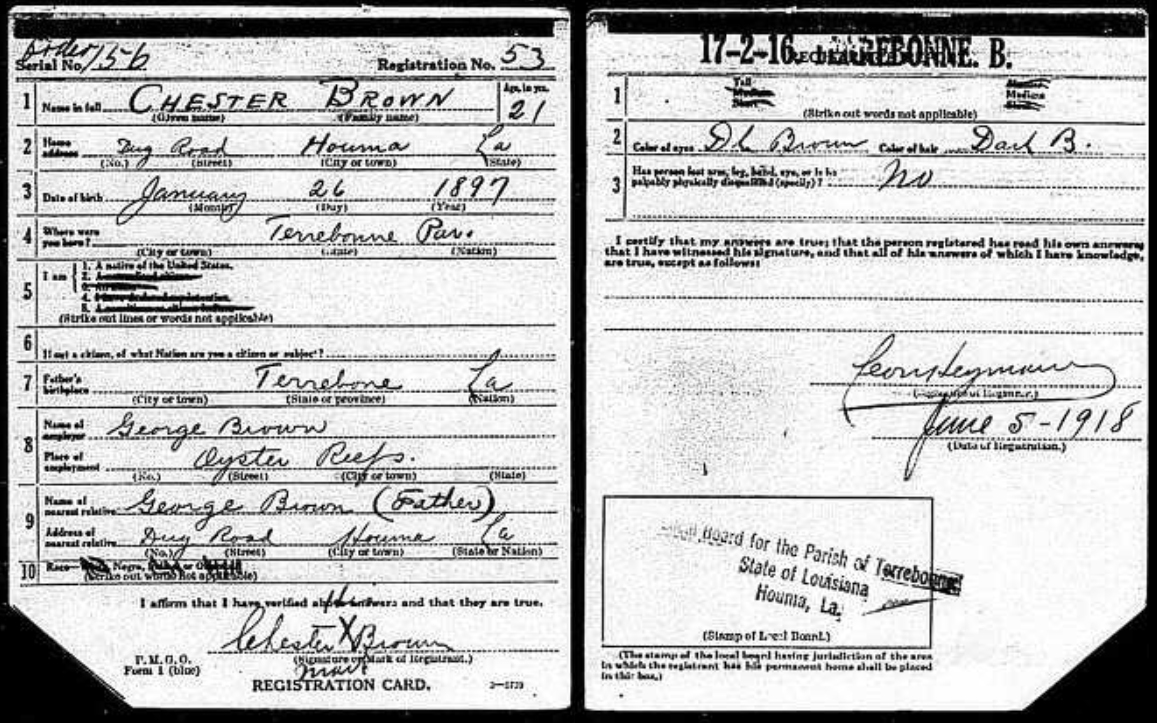 Order
Serial No. 156 Registration No. 53
1 Name in full CHESTER BROWN Age, in yrs. 21
(Given name) (Family name)
2 Home address Dug Road Houma La
(No.) (Street) (City or town) (State)
3 Date of birth January 26 1897
(Month) (Day) (Year)
4 Where were you born? Terrebonne Par.
(City or town) (State) (Nation)
5 I am 1. A native of the United States.
2.
3.
4.
5.
(Strike out lines or words not applicable)
6 If not a citizen, of what Nation are you a citizen or subject?
7 Father's birthplace Terrebone La
(City or town) (State or province) (Nation)
8 Name of employer George Brown
Place of employment Oyster Reefs.
(No.) (Street) (City or town) (State)
9 Name of nearest relative George Brown (Father)
Address of nearest relative Dug Road Houma La
(No.) (Street) (City or town) (State or Nation)
10 Race— Negro, or
(Strike out words not applicable)
I affirm that I have verified above answers and that they are true.
Chester X Brown
(Signature or Mark of Registrant.)
mark
P. M. G. O.
Form 1 (blue) REGISTRATION CARD.
17-2-16. TERREBONNE. B.
1 Tall Medium Short Medium
(Strike out words not applicable)
2 Color of eyes Dk Brown Color of hair Dark B.
3 Has person lost arm, leg, hand, eye, or is he
palpably physically disqualified (specify)? No
I certify that my answers are true; that the person registered has read his own answers;
that I have witnessed his signature, and that all of his answers of which I have knowledge,
are true, except as follows:
(Signature of Registrar.)
June 5-1918
(Date of Registration.)
Local Board for the Parish of Terrebonne
State of Louisiana
Houma, La.
(Stamp of Local Board.)
(The stamp of the local board having jurisdiction of the area
in which the registrant has his permanent home shall be placed
in this box.)